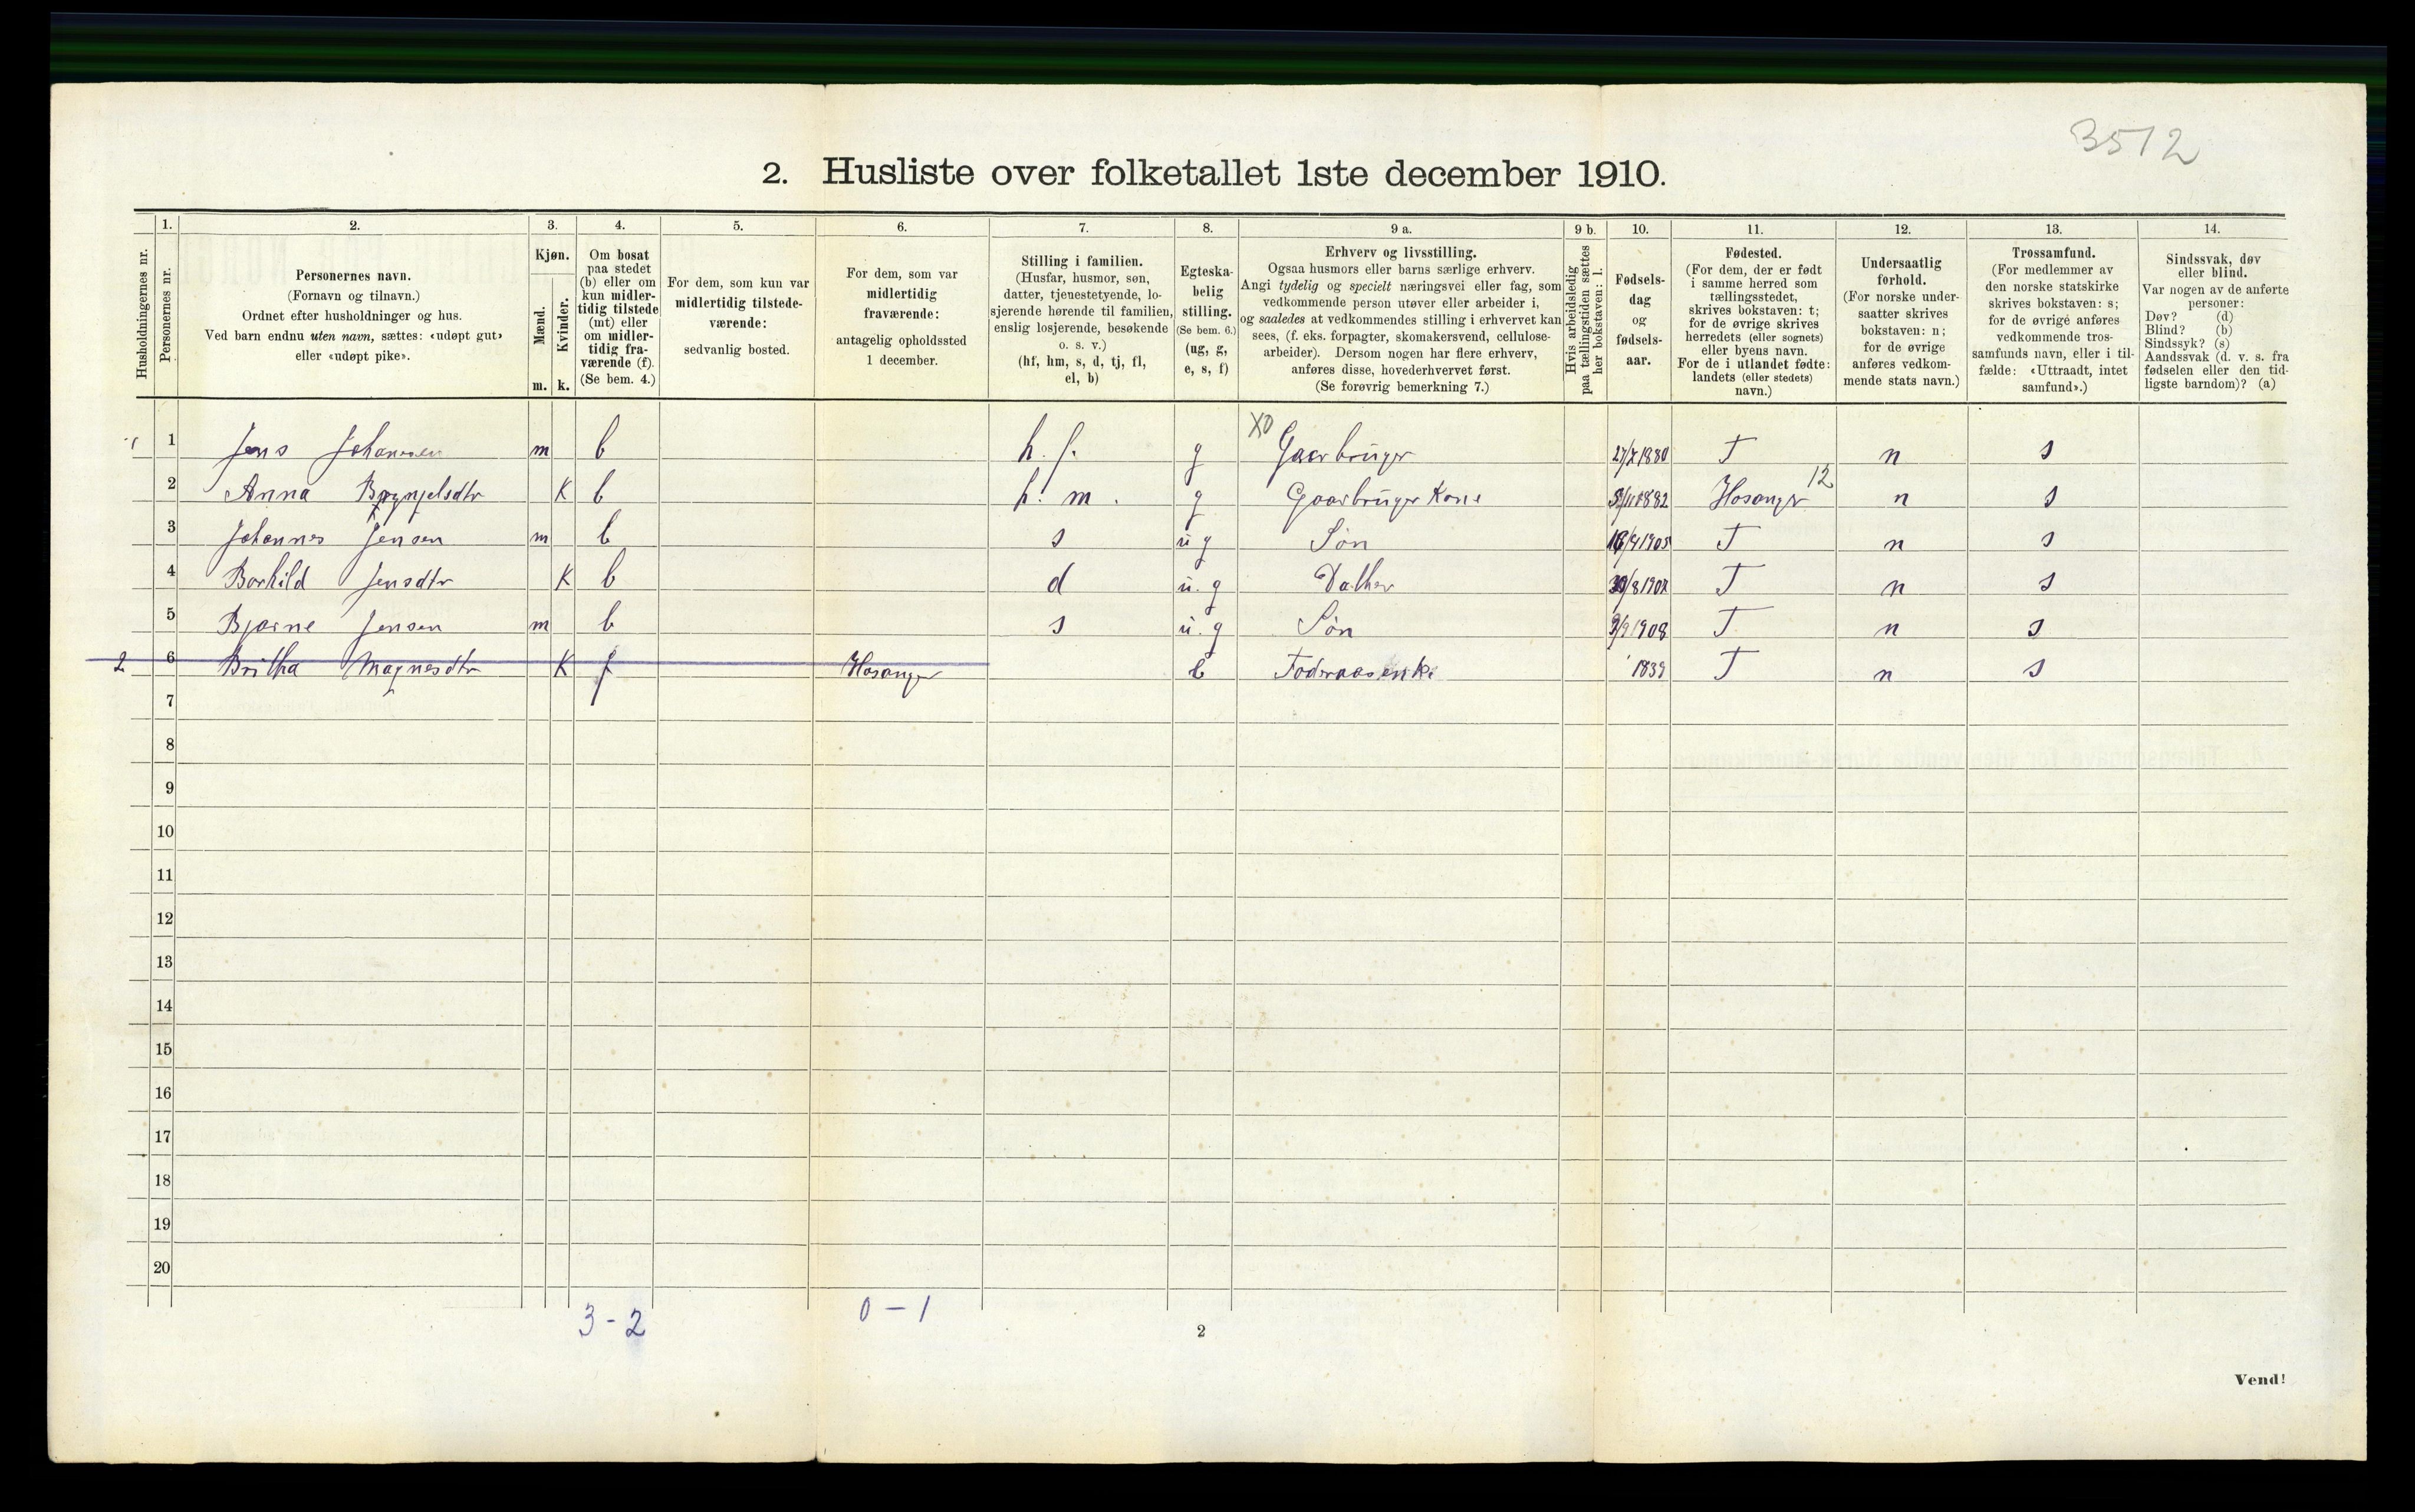 3512
2. Husliste over folketallet 1ste december 1910.
Husholdningernes nr.
1. Personernes nr.
2. Personernes navn. (Fornavn og tilnavn.) Ordnet efter husholdninger og hus. Ved barn endnu uten navn, sættes: «udøpt gut» eller «udøpt pike».
3. Kjøn. Mænd. m. Kvinder. k.
4. Om bosat paa stedet (b) eller om kun midlertidig tilstede (mt) eller om midlertidig fraværende (f). (Se bem. 4.)
5. For dem, som kun var midlertidig tilstedeværende: sedvanlig bosted.
6. For dem, som var midlertidig fraværende: antagelig opholdssted 1 december.
7. Stilling i familien. (Husfar, husmor, søn, datter, tjenestetyende, losjerende hørende til familien, enslig losjerende, besøkende o. s. v.) (hf, hm, s, d, tj, fl, el, b)
8. Egteskabelig stilling. (Se bem. 6.) (ug, g, e, s, f)
9 a. Erhverv og livsstilling. Ogsaa husmors eller barns særlige erhverv. Angi tydelig og specielt næringsvei eller fag, som vedkommende person utøver eller arbeider i, og saaledes at vedkommendes stilling i erhvervet kan sees, (f. eks. forpagter, skomakersvend, cellulosearbeider). Dersom nogen har flere erhverv, anføres disse, hovederhvervet først. (Se forøvrig bemerkning 7.)
9 b. Hvis arbeidsledig paa tællingstiden sættes her bokstaven: l.
10. Fødselsdag og fødselsaar.
11. Fødested. (For dem, der er født i samme herred som tællingsstedet, skrives bokstaven: t; for de øvrige skrives herredets (eller sognets) eller byens navn. For de i utlandet fødte: landets (eller stedets) navn.)
12. Undersaatlig forhold. (For norske undersaatter skrives bokstaven: n; for de øvrige anføres vedkommende stats navn.)
13. Trossamfund. (For medlemmer av den norske statskirke skrives bokstaven: s; for de øvrige anføres vedkommende trossamfunds navn, eller i tilfælde: «Uttraadt, intet samfund».)
14. Sindssvak, døv eller blind. Var nogen av de anførte personer: Døv? (d) Blind? (b) Sindssyk? (s) Aandssvak (d. v. s. fra fødselen eller den tidligste barndom)? (a)
1 1 Jens Johannsen m b h. f. g X0 Gaarbruger 27/7 1880 T n s
2 Anna K b h. m. g Gaarbruger Kone 1882 Hosanger 12 n s
3 Johannes Jensen m b s u g Søn 1905 T n s
4 Borhild Jensdtr K b d u. g Dather T n s
5 Bjarne Jensen m b s u. g Søn 1908 T n s
2 6 Britha Magnesdtr K f Hosanger e Foderaasenke 1839 T n s
7
8
9
10
11
12
13
14
15
16
17
18
19
20
3 - 2 0 - 1
2
Vend!